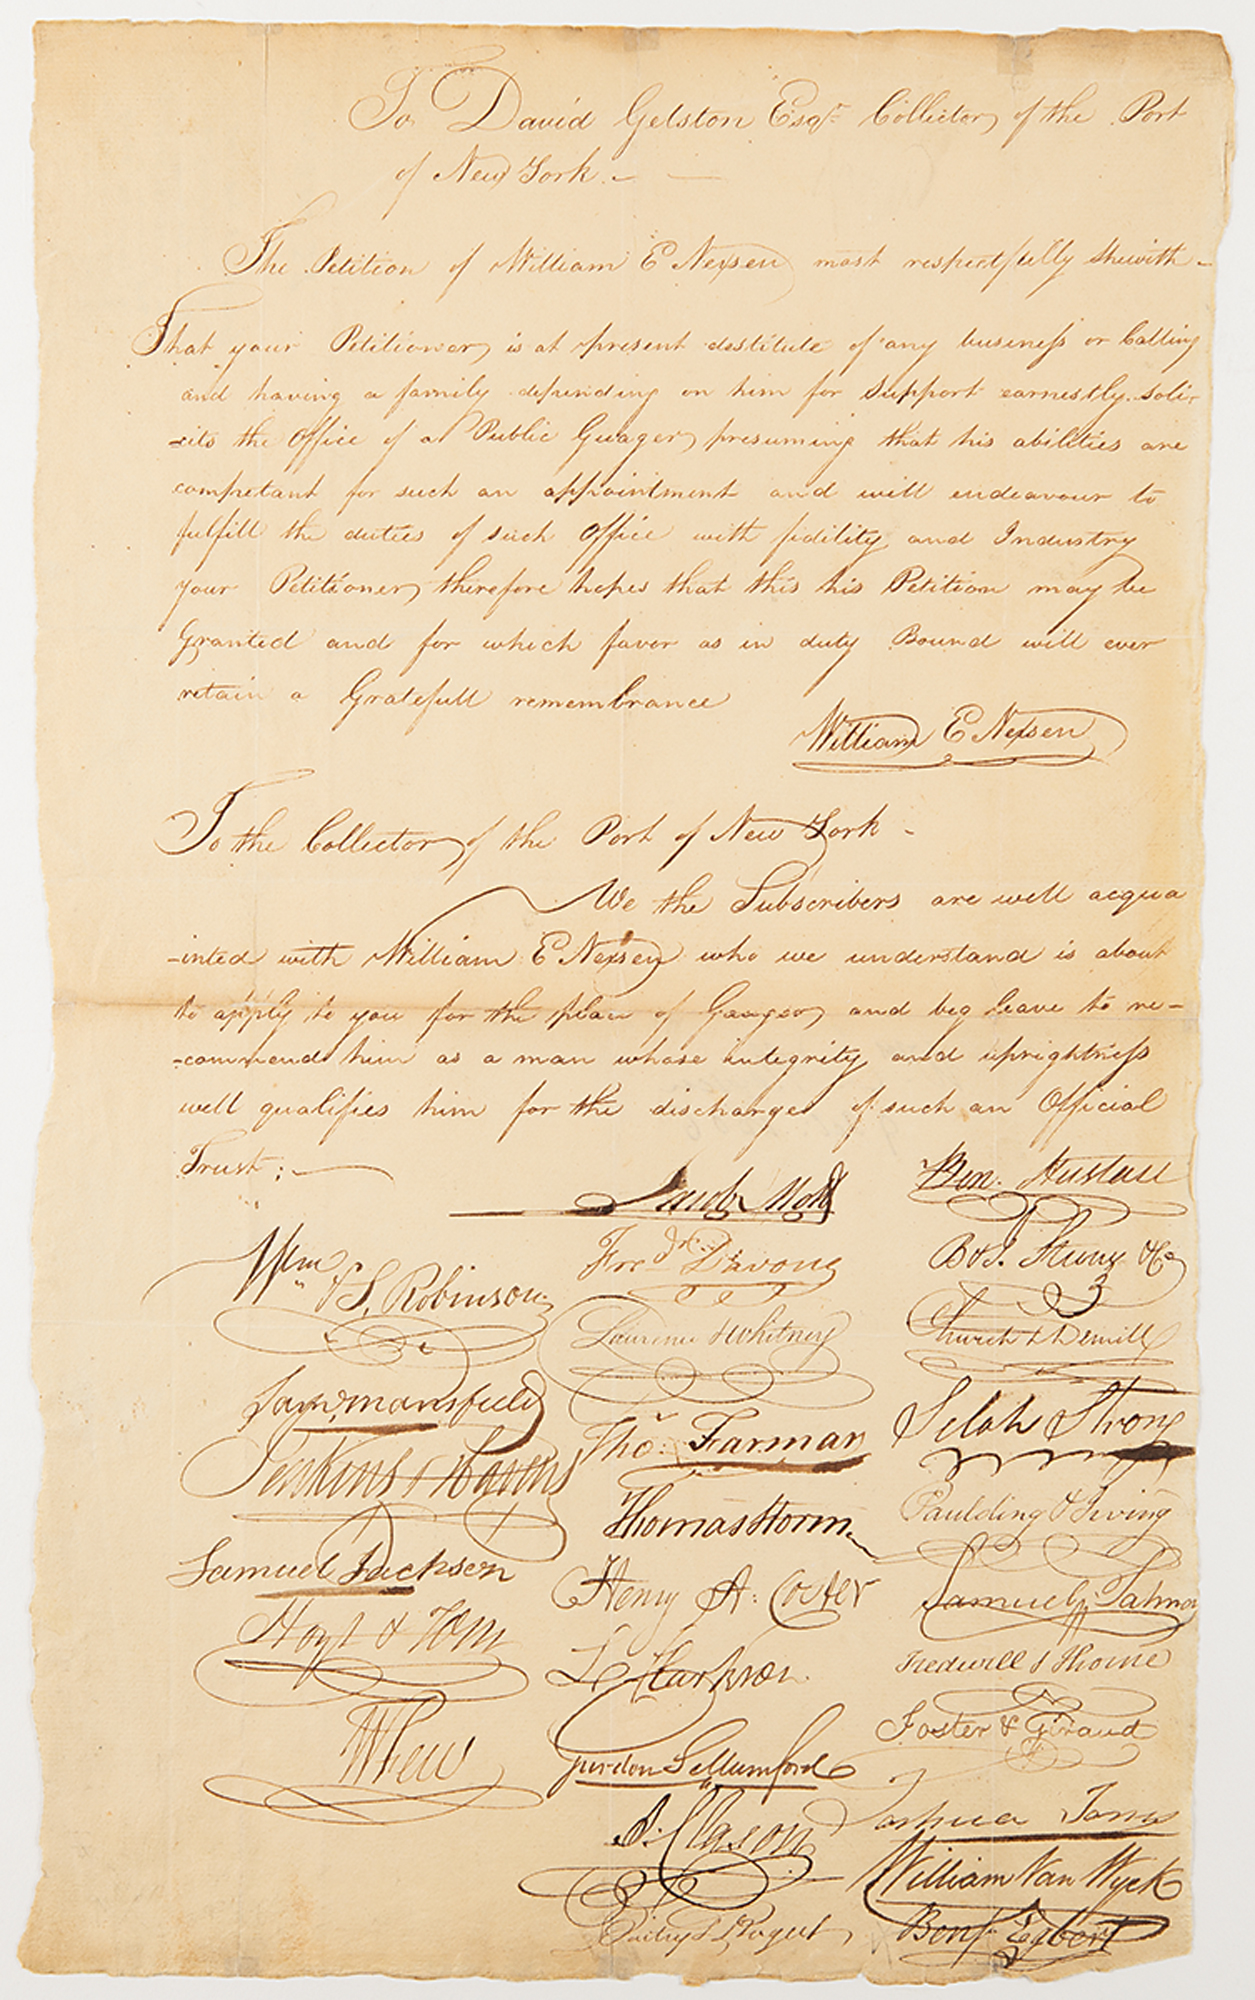 To David Gelston Esqr. Collector of the Port
of New York. –
The Petition of William E Nexsen most respectfully sheweth –
That your Petitioner is at present destitute of any business or Calling
and having a family depending on him for support earnestly soli-
-cits the Office of a Public Guager presuming that his abilities are
competant for such an appointment and will endeavour to
fulfill the duties of such Office with fidility and Industry
your Petitioner therefore hopes that this his Petition may be
Granted and for which favor as in duty Bound will ever
retain a Gratefull remembrance
William E Nexsen
To the Collector of the Port of New York –
We the Subscribers are well acqua
-inted with William E Nexsen who we understand is about
to apply to you for the place of Gaugeor and beg leave to re-
-commend him as a man whose integrity and uprightness
well qualifies him for the discharge of such an Official
Trust; —
Wm & S. Robinson
Saml. Mansfield
Jenkins & Havens
Samuel Jackson
Hoyt & Tom
Jacob Mott
Fredk.
Laurence & Whitney
Thos. Farmar
Thomas Storm
Henry A. Coster
Clarkson
Gurdon S. Mumford
Clason
& Bogert
Ben.
B & J. & Co
Church & Demill
Selah Strong
Paulding & Irving
Samuel
Tredwell & Thorne
Foster & Giraud
Joshua Jones
William Van Wyck
Benj. Egbert